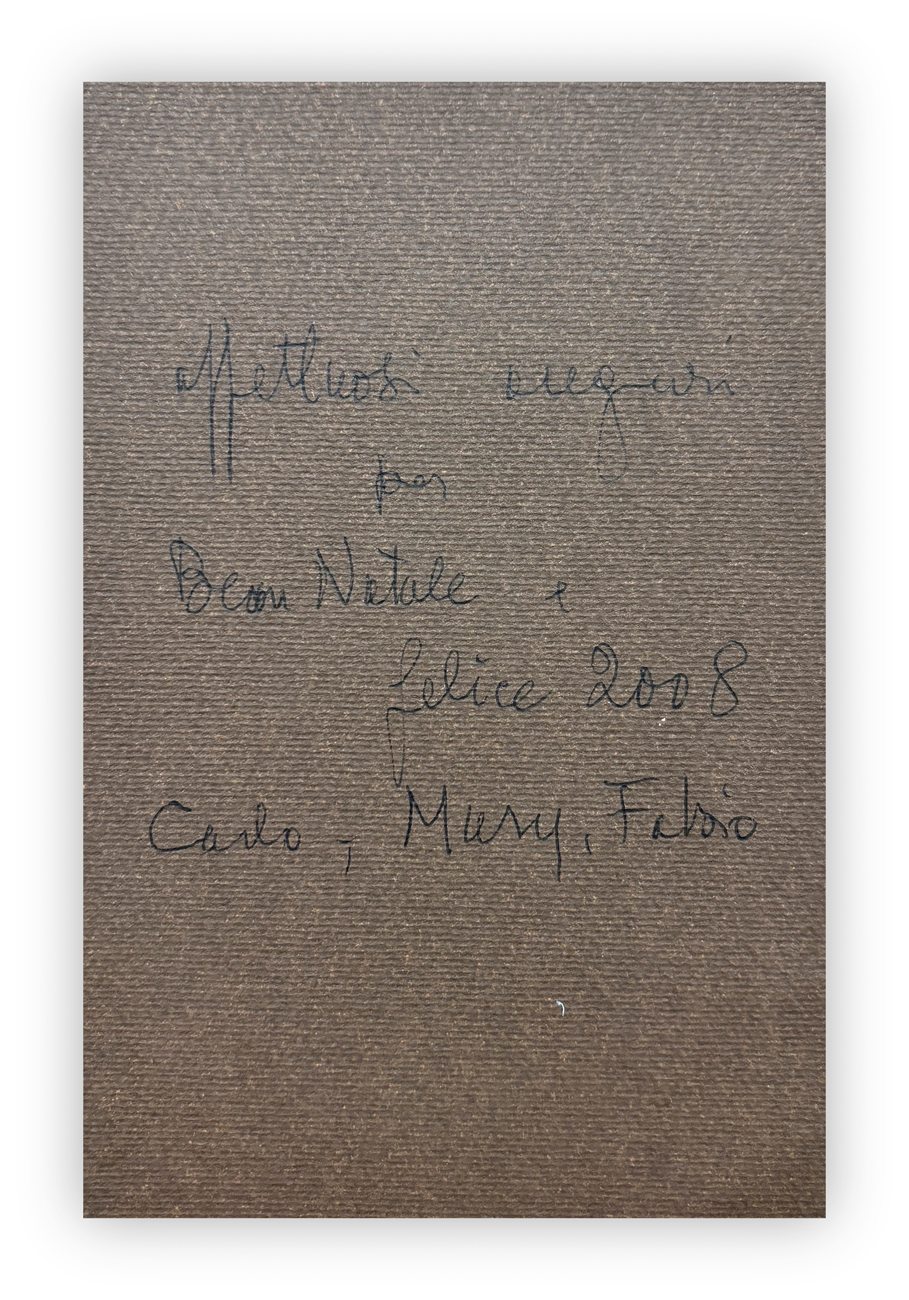 affettuosi auguri
per
Buon Natale e
felice 2008
Carlo, Mary, Fabio